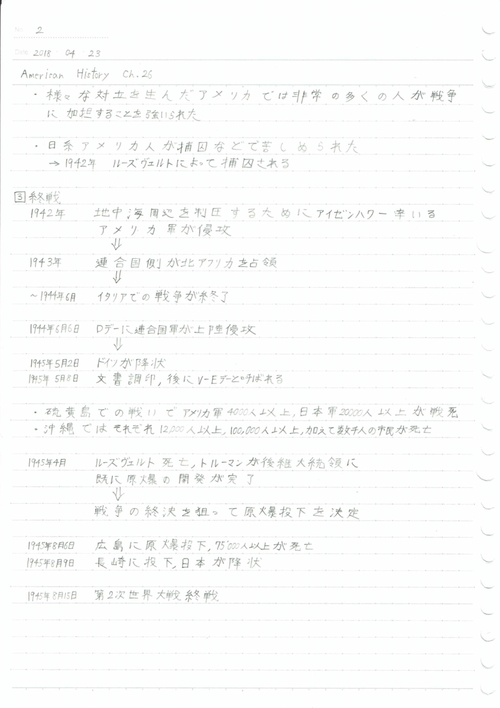 No. 2
Date 2018 ・ 04 ・ 23
American History Ch.26
・様々な対立を生んだアメリカでは非常の多くの人が戦争
に加担することを強いられた
・日系アメリカ人が捕囚などで苦しめられた
→1942年 ルーズヴェルトによって捕囚される
3 終戦
1942年 地中海周辺を制圧するためにアイゼンハワー率いる
アメリカ軍が侵攻
⇓
1943年 連合国側が北アフリカを占領
⇓
～1944年6月 イタリアでの戦争が終了
1944年6月6日 Dデーに連合国軍が上陸侵攻
⇓
1945年5月2日 ドイツが降状
1945年5月8日 文書調印,後にV-Eデーとよばれる
・硫黄島での戦いでアメリカ軍4000人以上,日本軍20000人以上が戦死
・沖縄ではそれぞれ12,000人以上,100,000人以上,加えて数千人の市民が死亡
1945年4月 ルーズヴェルト死亡,トルーマンが後継大統領に
既に原爆の開発が完了
⇓
戦争の終決を狙って原爆投下を決定
1945年8月6日 広島に原爆投下,75000人以上が死亡
1945年8月9日 長崎に投下,日本が降状
1945年8月15日 第2次世界大戦終戦